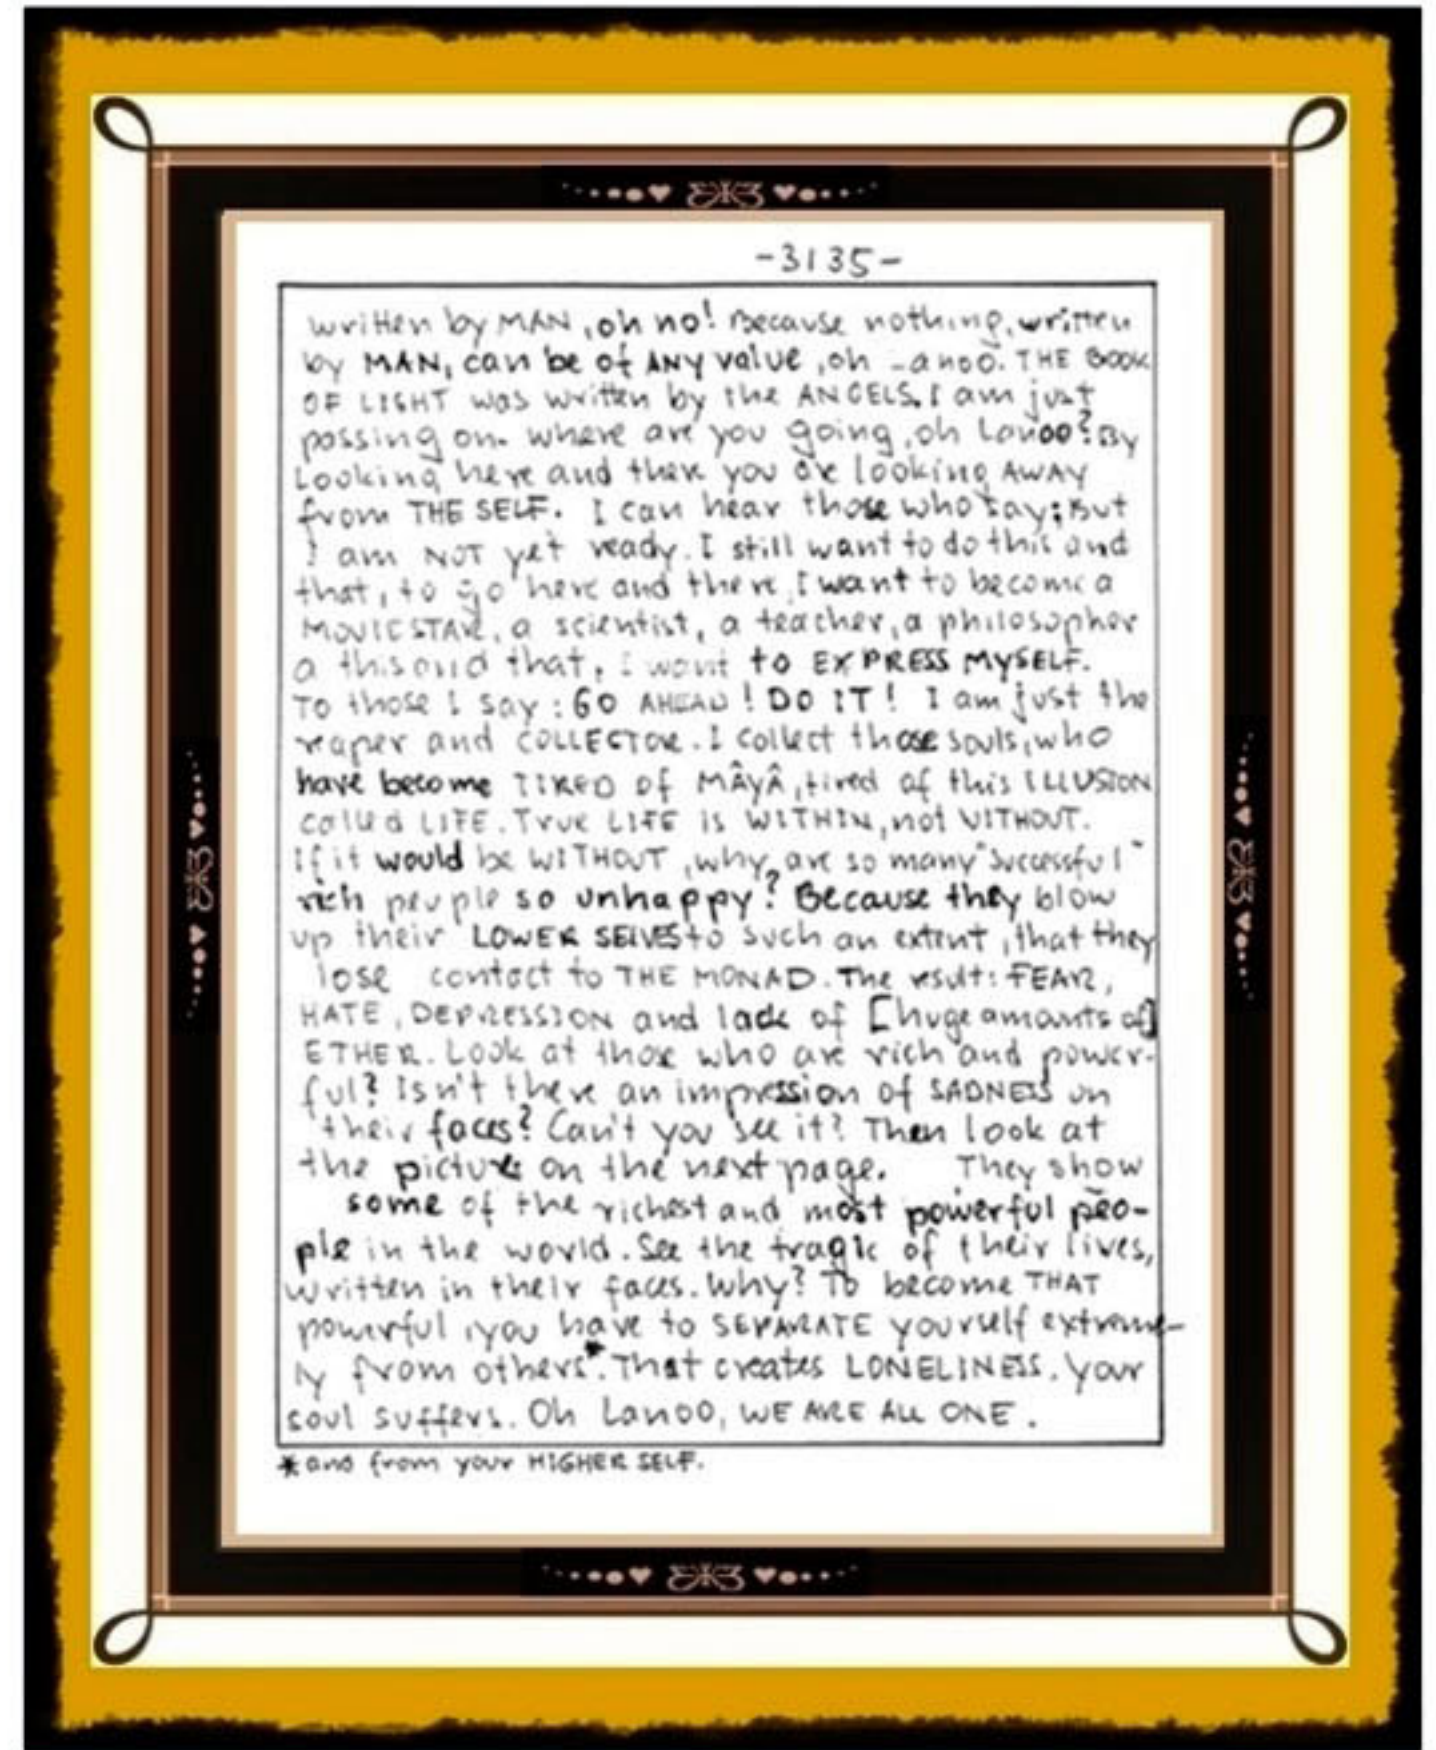 -3135-
written by MAN, oh no! Because nothing, written
by MAN, can be of ANY value, oh -anoo. THE BOOK
OF LIGHT was written by the ANGELS. I am just
passing on. Where are you going, oh Lanoo? By
Looking here and there you are looking AWAY
from THE SELF. I can hear those who say: But
I am NOT yet ready. I still want to do this and
that, to go here and there, I want to become a
MOVIESTAR, a scientist, a teacher, a philosopher
a this and that, I want to EXPRESS MYSELF.
To those I say: GO AHEAD! DO IT! I am just the
reaper and COLLECTOR. I collect those souls, who
have become TIRED of MÂYÂ, tired of this ILLUSION
called LIFE. True LIFE is WITHIN, not VITHOUT.
If it would be WITHOUT, why are so many "successful"
rich people so unhappy? Because they blow
up their LOWER SELVES to such an extent, that they
lose contact to THE MONAD. The result: FEAR,
HATE, DEPRESSION and lack of [huge amounts of]
ETHER. Look at those who are rich and power-
ful? Isn't there an impression of SADNESS on
their faces? Can't you see it? Then look at
the picture on the next page. They show
some of the richest and most powerful peo-
ple in the world. See the tragic of their lives,
written in their faces. Why? To become THAT
powerful, you have to SEPARATE yourself extreme-
ly from others*. That creates LONELINESS. Your
soul suffers. Oh Lanoo, WE ARE ALL ONE.
* and from your HIGHER SELF.